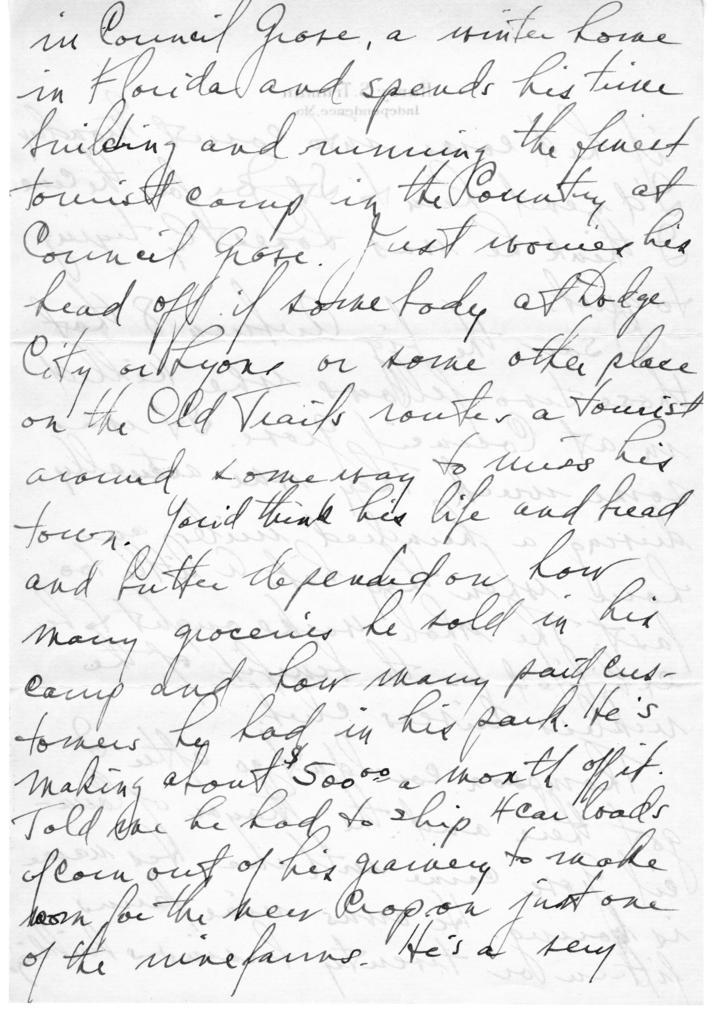 in Council Grove, a winter home
in Florida and spends his time
building and running the finest
tourist camp in the Country at
Council Grove. Just worries his
head off if somebody at Dodge
City or Lyons or some other place
on the Old Trails routes a tourist
around someway to miss his
town. You'd think his life and bread
and butter depended on how
many groceries he sold in his
camp and how many paid cus-
tomers he had in his park. He's
making about $500⁰⁰ a month off it.
Told me he had to ship 4 car loads
of corn out of his grainery to make
room for the new crop on just one
of the nine farms. He's a very